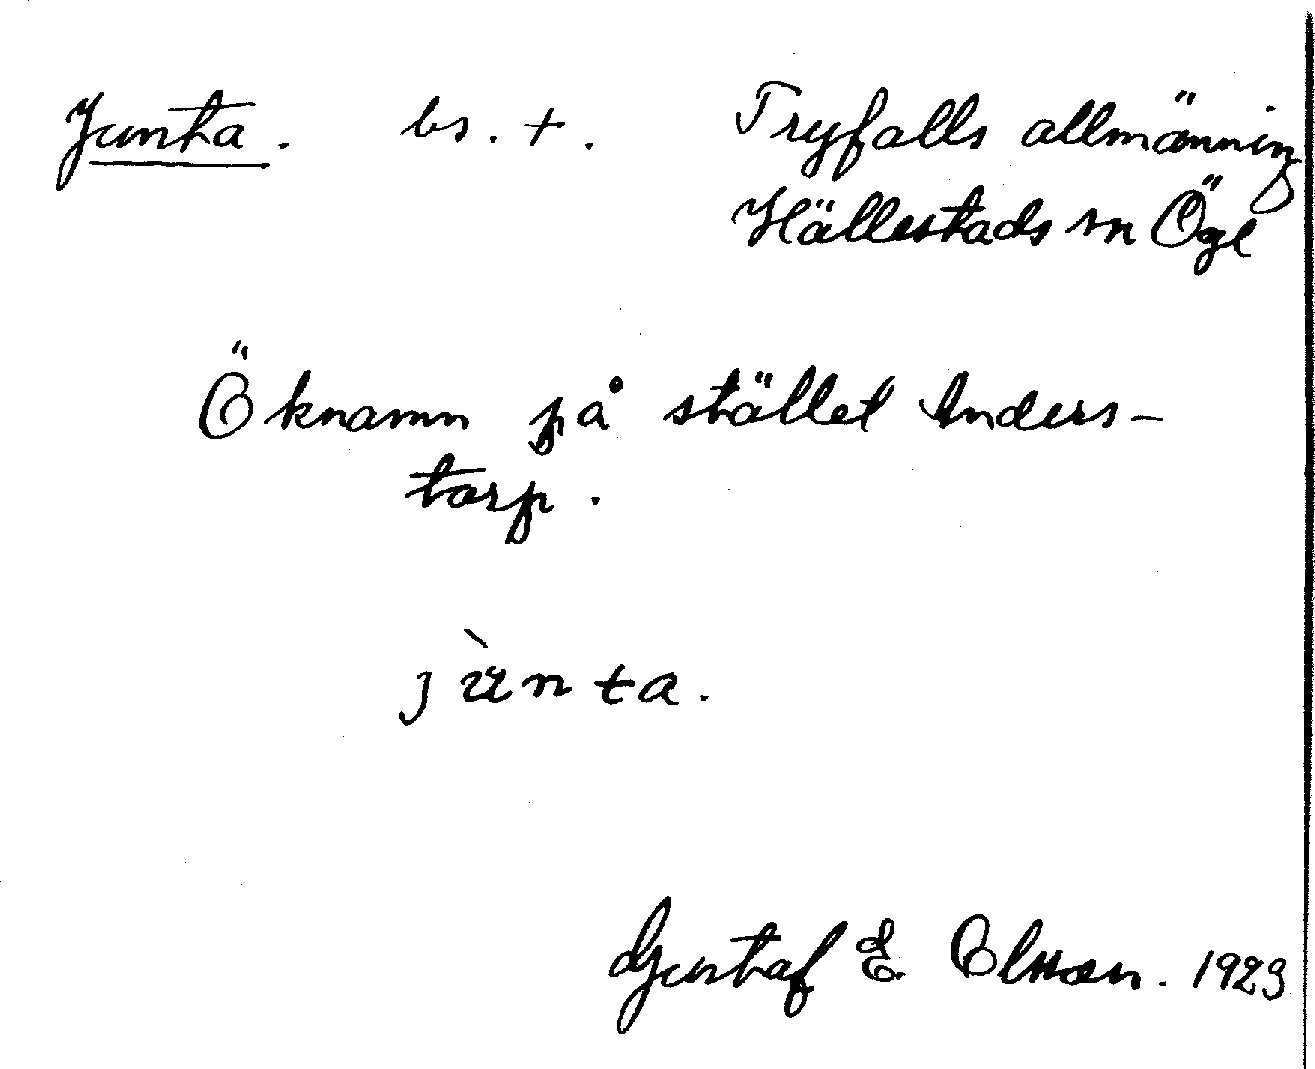 Junta. bs. +. Tryfalls allmänning
Hällestads sn Ögl
Öknamn på stället Anders-
torp.
jùnta.
Gustaf E. Olsson. 1923